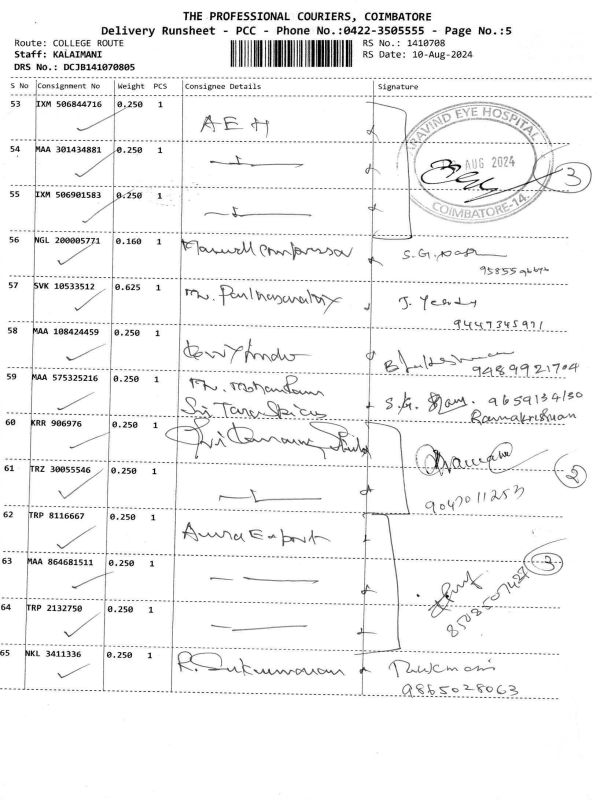 THE PROFESSIONAL COURIERS, COIMBATORE
Delivery Runsheet - PCC - Phone No.:0422-3505555 - Page No.:5
Route: COLLEGE ROUTE RS No.: 1410708
Staff: KALAIMANI RS Date: 10-Aug-2024
DRS No.: DCJB141070805
S No Consignment No Weight PCS Consignee Details Signature
53 IXM 506844716 0.250 1 AEH
ARAVIND EYE HOSPITAL
AUG 2024
COIMBATORE-14.
3
54 MAA 301434881 0.250 1
55 IXM 506901583 0.250 1
56 NGL 200005771 0.160 1 S.G.
57 SVK 10533512 0.625 1 J.
9447345971
58 MAA 108424459 0.250 1
9489921704
59 MAA 575325216 0.250 1 S.G. 9659134130
Sri Ramakrishnan
60 KRR 906976 0.250 1 Sri
61 TRZ 30055546 0.250 1
9047011253
2
62 TRP 8116667 0.250 1 Aura Export
63 MAA 864681511 0.250 1
3
8508507427
64 TRP 2132750 0.250 1
65 NKL 3411336 0.250 1 R. Sukumaran Rukmani
9865028063